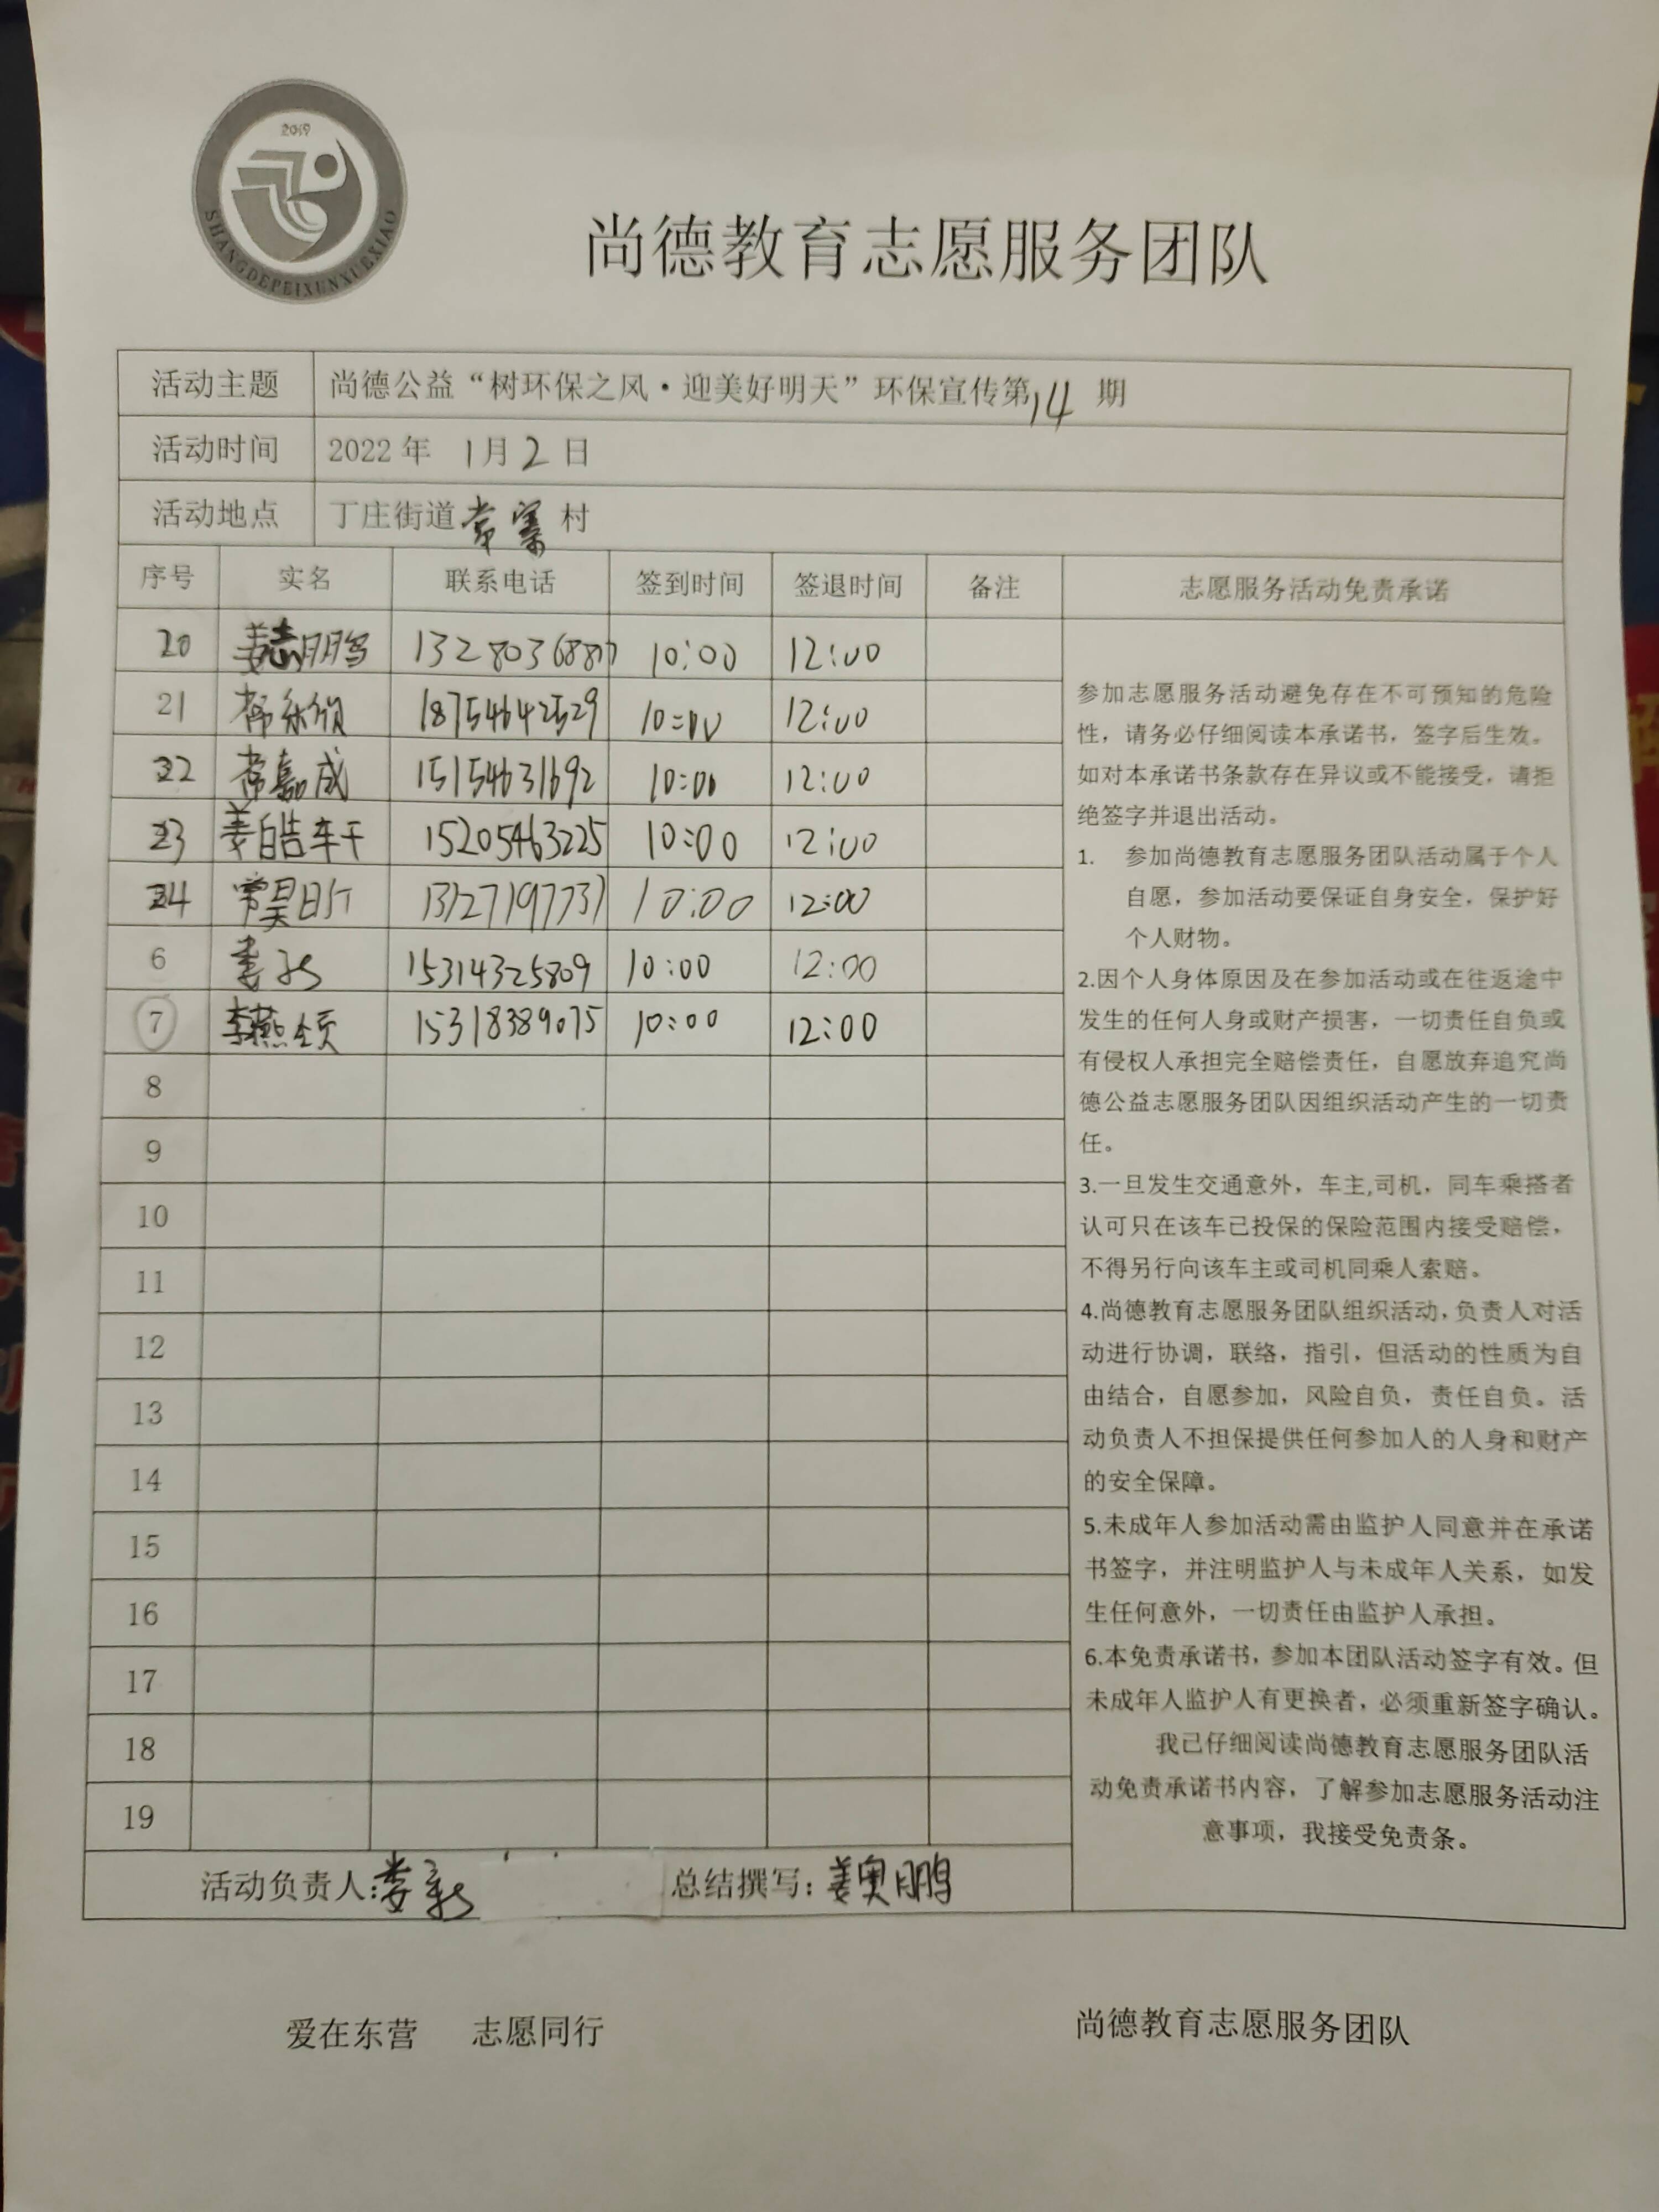 2019
SHANGDEPEIXUNXUEXIAO
尚德教育志愿服务团队
活动主题 尚德公益“树环保之风·迎美好明天”环保宣传第14期
活动时间 2022年 1月2日
活动地点 丁庄街道常寨村
序号 实名 联系电话 签到时间 签退时间 备注 志愿服务活动免责承诺
20 姜志鹏 10:00 12:00
21 常 18754642529 10:00 12:00
22 常嘉成 15154631692 10:00 12:00
23 姜皓轩 15205463225 10:00 12:00
24 常昊 10:00 12:00
6 娄 15314325809 10:00 12:00
7 李燕颂 15318389075 10:00 12:00
8
9
10
11
12
13
14
15
16
17
18
19
参加志愿服务活动避免存在不可预知的危险
性，请务必仔细阅读本承诺书，签字后生效。
如对本承诺书条款存在异议或不能接受，请拒
绝签字并退出活动。
1. 参加尚德教育志愿服务团队活动属于个人
自愿，参加活动要保证自身安全，保护好
个人财物。
2.因个人身体原因及在参加活动或在往返途中
发生的任何人身或财产损害，一切责任自负或
有侵权人承担完全赔偿责任，自愿放弃追究尚
德公益志愿服务团队因组织活动产生的一切责
任。
3.一旦发生交通意外，车主,司机，同车乘搭者
认可只在该车已投保的保险范围内接受赔偿，
不得另行向该车主或司机同乘人索赔。
4.尚德教育志愿服务团队组织活动，负责人对活
动进行协调，联络，指引，但活动的性质为自
由结合，自愿参加，风险自负，责任自负。活
动负责人不担保提供任何参加人的人身和财产
的安全保障。
5.未成年人参加活动需由监护人同意并在承诺
书签字，并注明监护人与未成年人关系，如发
生任何意外，一切责任由监护人承担。
6.本免责承诺书，参加本团队活动签字有效。但
未成年人监护人有更换者，必须重新签字确认。
我已仔细阅读尚德教育志愿服务团队活
动免责承诺书内容，了解参加志愿服务活动注
意事项，我接受免责条。
活动负责人：娄 总结撰写：姜奥鹏
爱在东营 志愿同行 尚德教育志愿服务团队